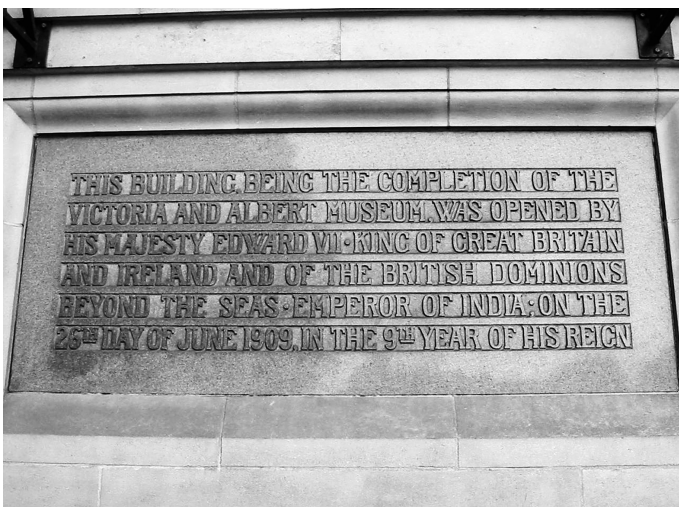 THIS BUILDING, BEING THE COMPLETION OF THE
VICTORIA AND ALBERT MUSEUM, WAS OPENED BY
HIS MAJESTY EDWARD VII · KING OF GREAT BRITAIN
AND IRELAND AND OF THE BRITISH DOMINIONS
BEYOND THE SEAS · EMPEROR OF INDIA · ON THE
26TH DAY OF JUNE 1909, IN THE 9TH YEAR OF HIS REIGN